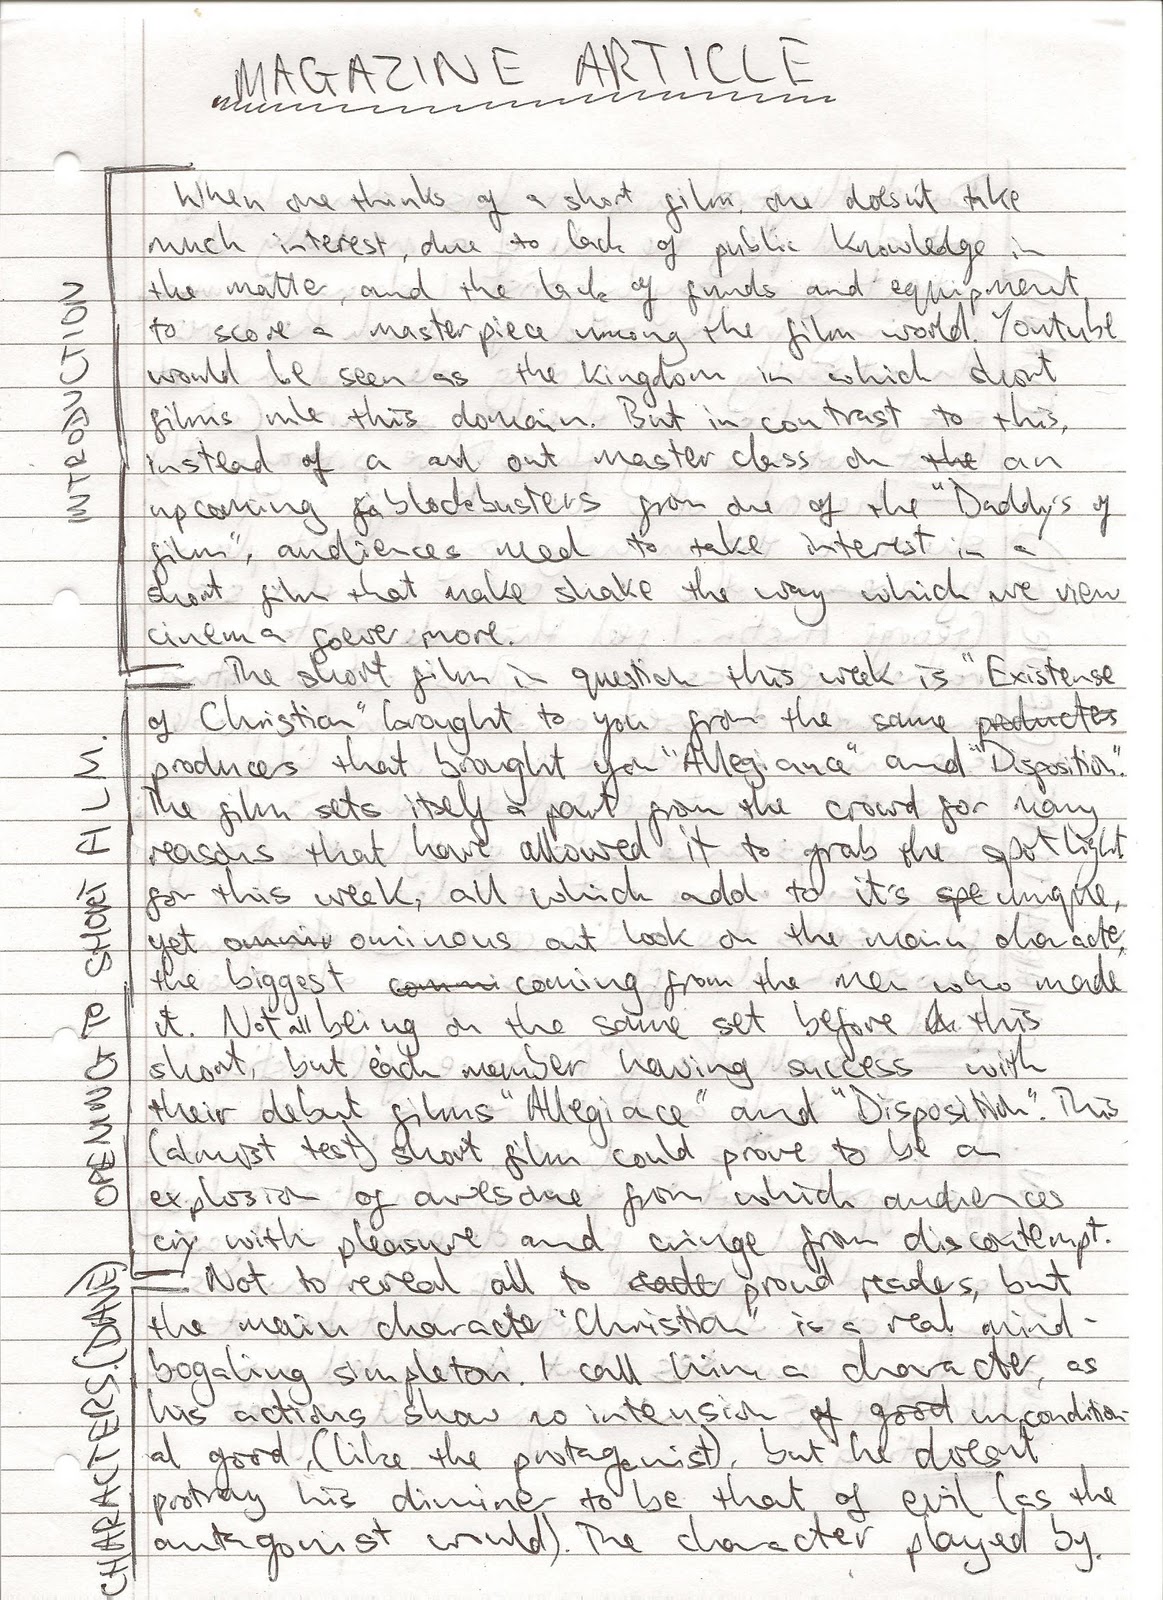 MAGAZINE ARTICLE
INTRODUCTION
When one thinks of a short film, one doesn't take
much interest, due to lack of public knowledge in
the matter, and the lack of funds and equipment,
to score a masterpiece among the film world. Youtube
would be seen as the kingdom in which short
films rule this domain. But in contrast to this,
instead of a out masterclass on the an
upcoming blockbusters from one of the "Daddy's of
film", audiences need to take interest in a
short film that make shake the way which we view
cinema foever more.
OPENING TO SHORT FILM.
The short film in question this week is "Existense
of Christian" brought to you from the same productes
producers that brought you "Allegiance" and "Disposition".
The film sets itself a part from the crowd for many
reasons that have allowed it to grab the spotlight
for this week, all which add to it's spe unique,
yet ominous out look on the main character,
the biggest coming from the men who made
it. Not all being on the same set before this
short, but each member having success with
their debut films "Allegiace" and "Disposition". This
(almost test) short film could prove to be an
explosion of awesome from which audiences
cry with pleasure and cringe from discontempt.
CHARACTERS. (DANE)
Not to reveal all to proud readers, but
the main characte "Christian" is a real mind-
bogaling simpleton. I call him a character, as
his actions show no intension of good uncondition-
al good, (like the protagonist), but he doesnt
protray his diminer to be that of evil (as the
antagonist would). The character played by.